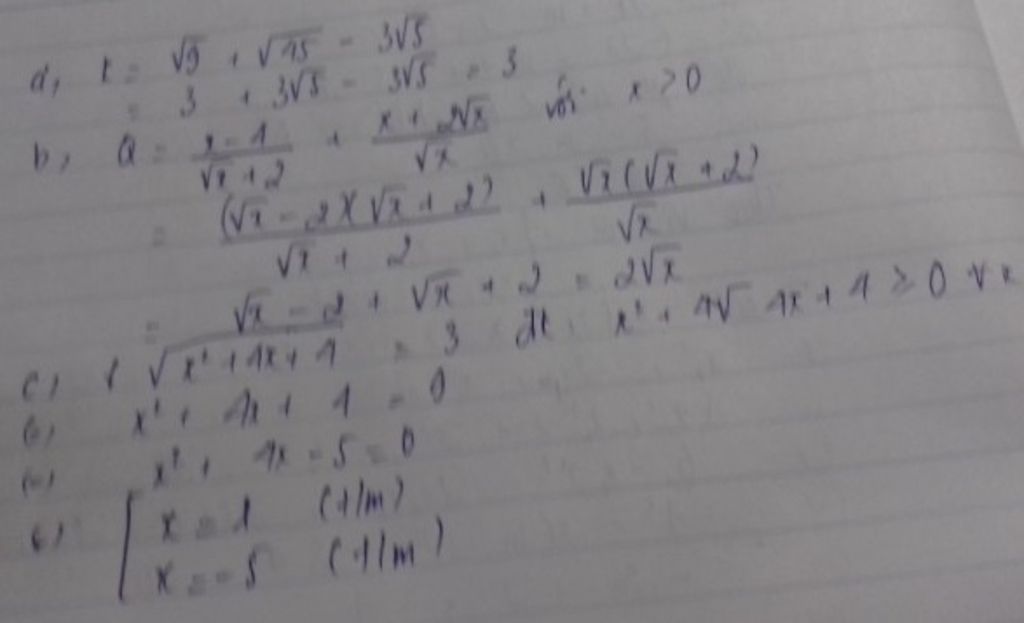 a, P = √9 + √45 - 3√5
= 3 + 3√5 - 3√5 = 3
b, Q = x-4/√x+2 + x+2√x/√x với x > 0
= (√x-2)(√x+2)/√x+2 + √x(√x+2)/√x
= √x-2 + √x+2 = 2√x
c) √x²+4x+4 = 3 x²+4√ 4x+4 ≥ 0 ∀x
(=) x² + 4x + 4 = 9
(=) x² + 4x - 5 = 0
(=) [ x = 1 (t/m)
x = -5 (t/m)